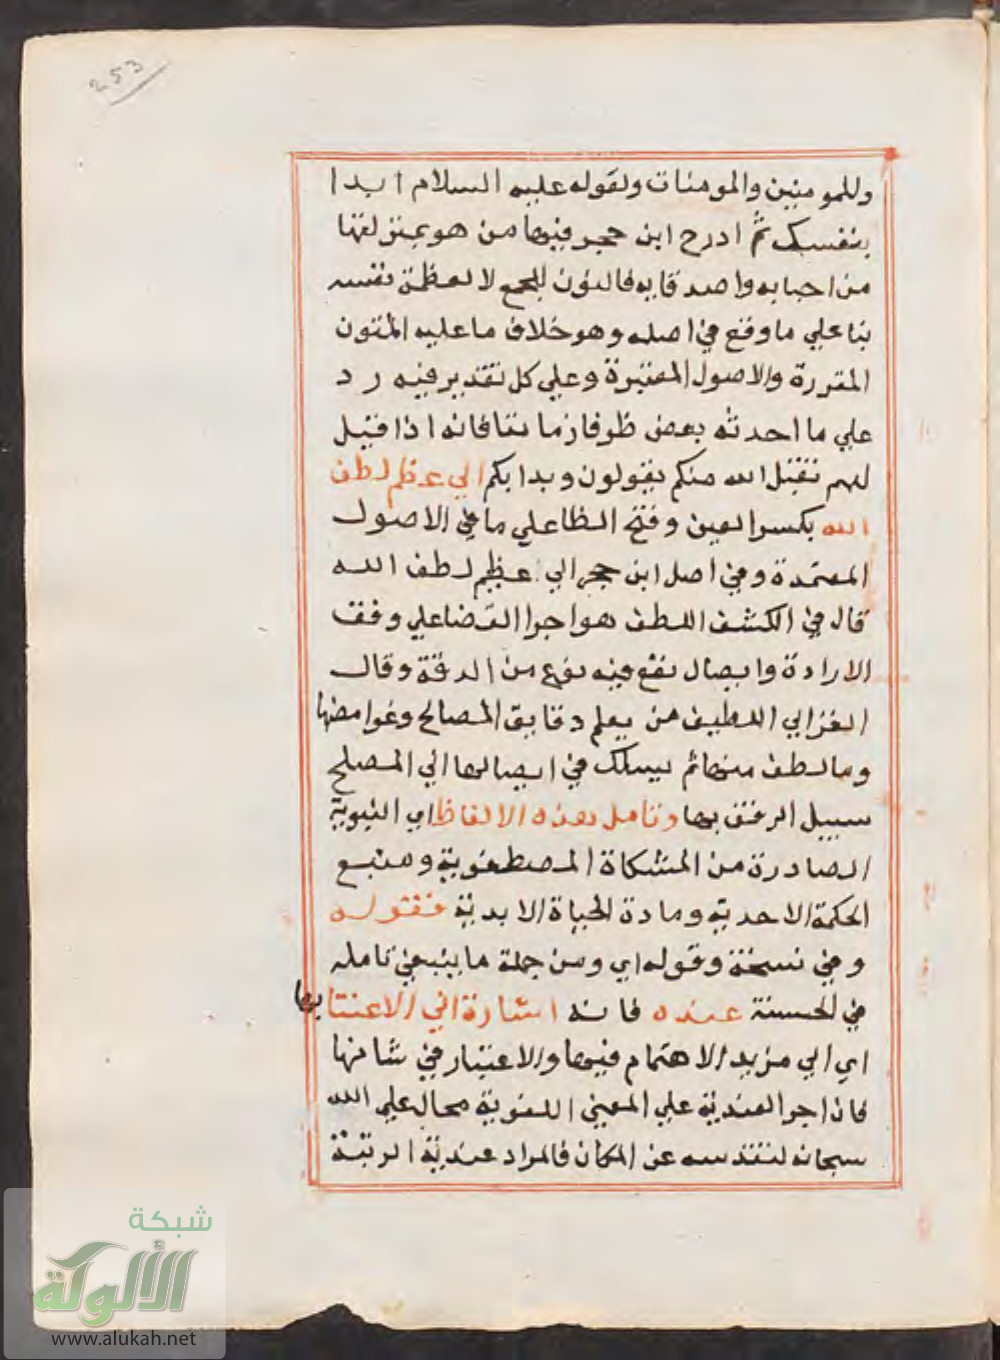 253
وللمومنين والمومنات ولقوله عليه السلام ابدا
بنفسك ثم ادرج ابن حجر فيها من هو بمنزلتها
من احبابه واصدقايه فالنون للجمع لا لعظمة نفسه
بنا علي ما وقع في اصله وهو خلاف ما عليه المتون
المقررة والاصول المعتبرة وعلي كل تقدير فيه رد
علي ما احدثه بعض ظرفا زماننا فانه اذا قيل
لهم تقبل الله منكم يقولون وبدا بكم الي عظم لطف
الله بكسر العين وفتح الظا علي ما في الاصول
المعتمدة وفي اصل ابن حجر الي عظيم لطف الله
قال في الكشف اللطف هو اجرا القضا علي وفق
الارادة وايصال نفع فيه نوع من الدقة وقال
الغزالي اللطيف من يعلم دقايق المصالح وغوامضها
وما لطف منها ثم يسلك في ايصالها الي المصلح
سبيل الرفق بها وتامل هذه الالفاظ اي النبوية
الصادرة من المشكاة المصطفوية ومنبع
الحكمة الاحدية ومادة الحياة الابدية فقوله
وفي نسخة وقوله اي ومن جملة ما ينبغي تامله
في الحسنة عنده فانه اشارة الي الاعتنا بها
اي الي مزيد الاهتمام فيها والاعتبار في شانها
فان اجرا العندية علي المعني اللغوية محال علي الله
سبحانه لتقدسه عن المكان فالمراد عندية الرتبة
شبكة
الألوكة
www.alukah.net